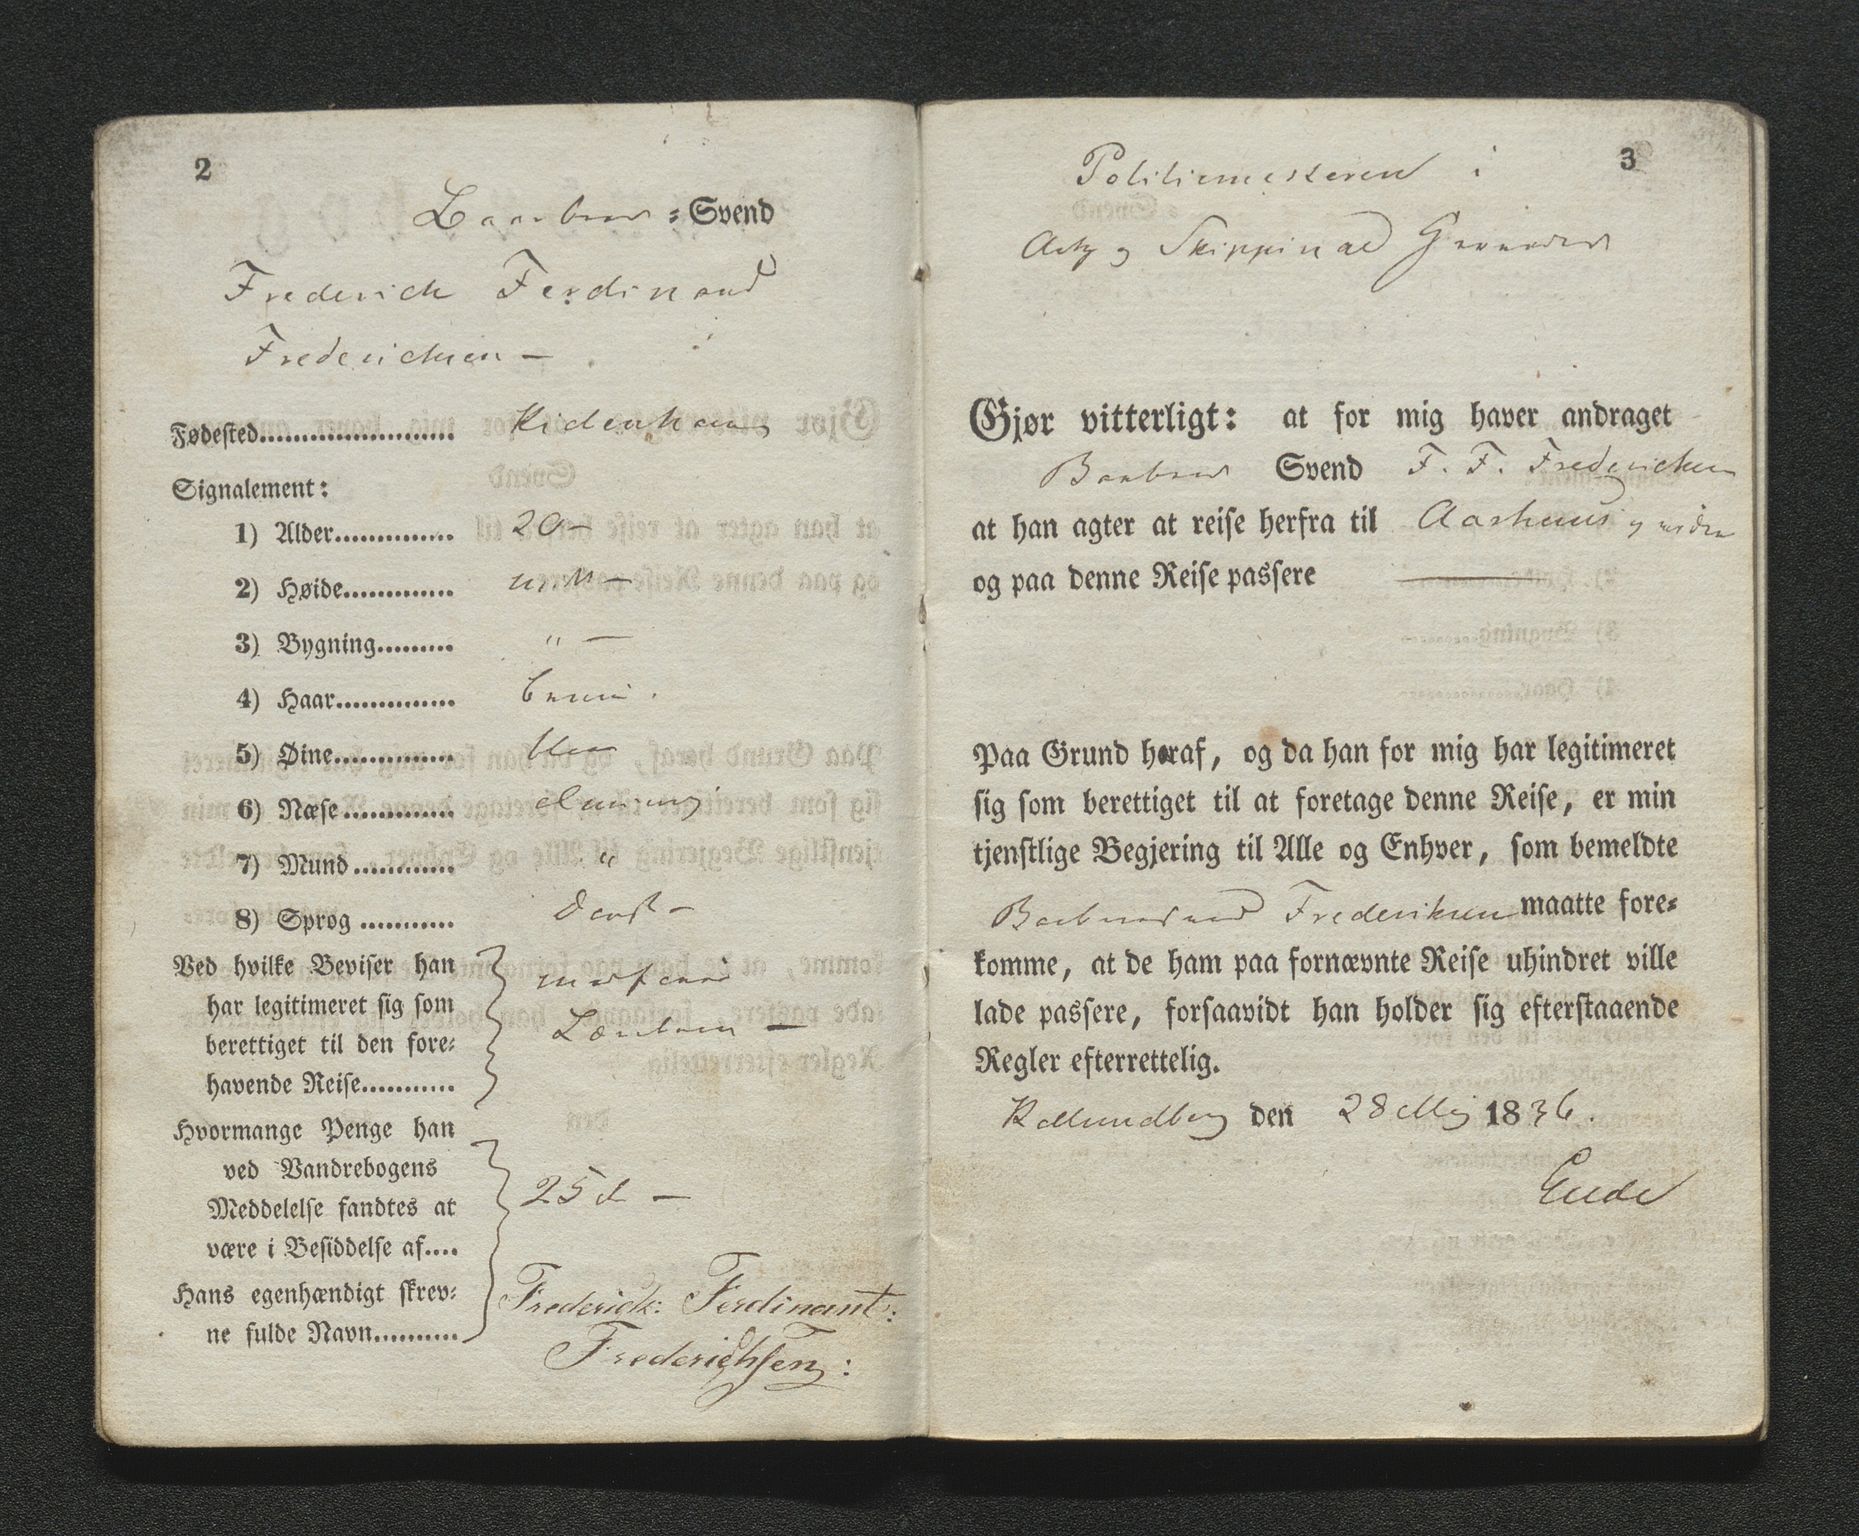 2
Baarbeer⸗Svend
Frederich Ferdinand
Frederichsen –
Fødested....................... Kidenhavn
Signalement:
1) Alder.............. 20 –
2) Høide............. –
3) Bygning......... " –
4) Haar.............. bruun.
5) Øine.............. blaa
6) Næse............. almindelig
7) Mund............ "
8) Sprog ........... dansk –
Ved hvilke Beviser han
har legitimeret sig som
berettiget til den fore⸗
havende Reise...........
Lærebrev –
Hvormange Penge han
ved Vandrebogens
Meddelelse fandtes at
være i Besiddelse af....
25 –
Hans egenhændigt skrev⸗
ne fulde Navn..........
Frederick: Ferdinant:
Frederichsen:
3
Politiemesteren i
Arts og Skippinge
Gjør vitterligt: at for mig haver andraget
Barbeer Svend F. F. Frederichsen
at han agter at reise herfra til Aarhuus og
og paa denne Reise passere –
Paa Grund heraf, og da han for mig har legitimeret
sig som berettiget til at foretage denne Reise, er min
tjenstlige Begjering til Alle og Enhver, som bemeldte
Barbeersvend Frederiksen maatte fore⸗
komme, at de ham paa fornævnte Reise uhindret ville
lade passere, forsaavidt han holder sig efterstaaende
Regler efterrettelig.
Kallundborg den 28 Maj 1836.